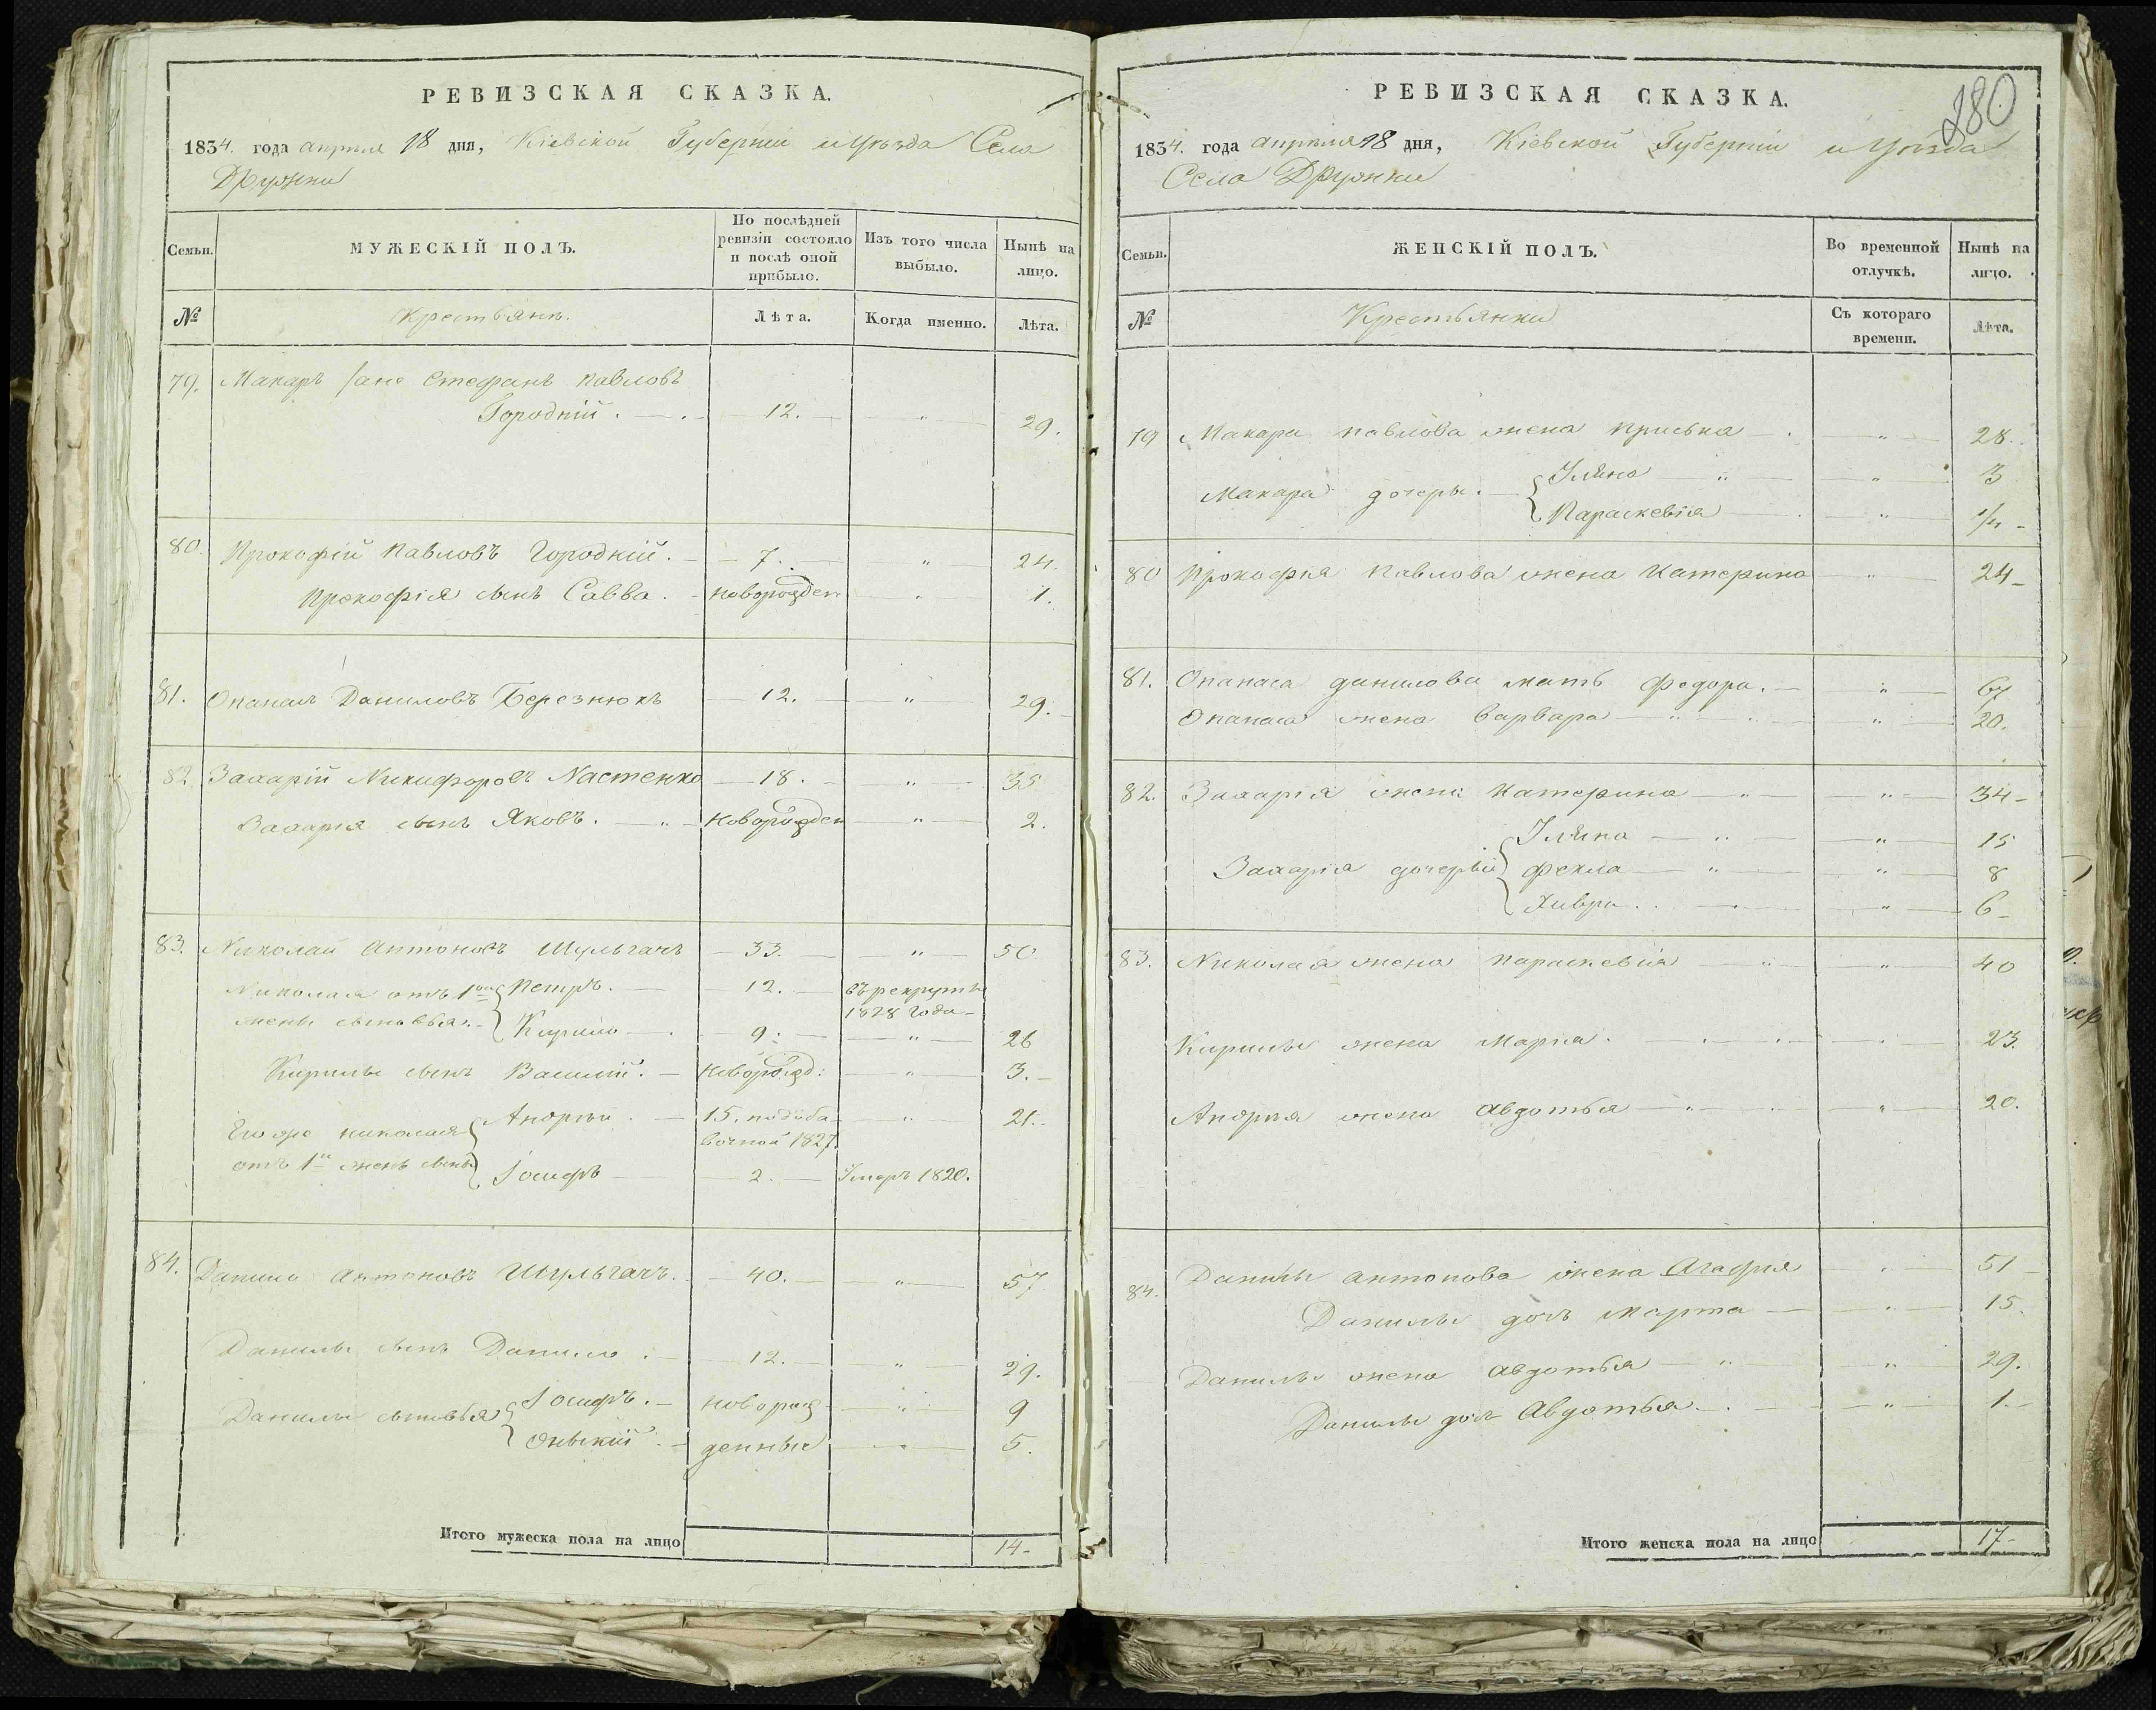 РЕВИЗСКАЯ СКАЗКА.
1834. года апрѣля 18 дня, Кіевской Губерніи и уѣзда Села
Дружни
Семьи. МУЖЕСКІЙ ПОЛЪ. По послѣдней ревизіи состояло и послѣ оной прибыло. Изъ того числа выбыло. Нынѣ на лицо.
№ Крестьянъ. Лѣта. Когда именно. Лѣта.
79. Макаръ /ане Стефанъ Павловъ
Городній. 12. " 29.
80. Прокофій Павловъ Городній. 7. " 24.
Прокофія сынъ Савва. новорожден " 1.
81. Опанасъ Даниловъ Березнюкъ 12. " 29.
82. Захарій Никифоровъ Настенко 18. " 35
Захарія сынъ Яковъ. новорожден " 2.
83. Николай Антоновъ Шульгачъ 33. " 50
Николая отъ 1ой Петръ. 12. въ рекруты
жены сыновья. 1828 года
Кирило 9. " 26
Кирилы сынъ Василій. новорожд: " 3.
Андрѣй 15. " 21.
Его же Николая вочной 1827.
отъ 1й жены сынъ Іосифъ 2. Умеръ 1820.
84. Данило Антоновъ Шульгачъ. 40. " 57
Данилы сынъ Данило. 12. " 29.
Данилы сыновья Іосифъ. новорож " 9
денные " 5.
Итого мужеска пола на лицо 14.
180
РЕВИЗСКАЯ СКАЗКА.
1834. года апрѣля 18 дня, Кіевской Губерніи и уѣзда
Села Дружни
Семьи. ЖЕНСКІЙ ПОЛЪ. Во временной отлучкѣ. Нынѣ на лицо.
№ Крестьянки Съ котораго времени. Лѣта.
79 Макара Павлова жена Приська " 28.
Макара дочеры. Уляна " 3
Параскевія "
80 Прокофія Павлова жена Катерина " 24
81. Опанаса Данилова мать Федора. " 67
Опанаса жена Варвара " 20.
82. Захарія жена Катерина " 34
Уляна " 15
Захарія дочерьи Фекла " 8
Хивря. " 6
83. Николая жена Параскевія " 40
Кирилы жена Марія. 23.
Андрѣя жена Авдотья " 20.
84. Данилы Антонова жена Агафія " 51
Данилы дочь Марта " 15.
Данилы жена Авдотья " 29.
Данилы дочь Авдотья. " 1.
Итого женска пола на лицо 17